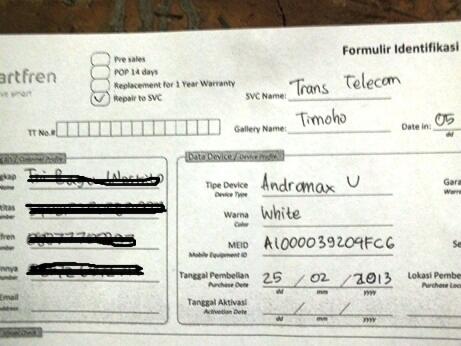 Formulir Identifikasi
artfren
Pre sales
POP 14 days
Replacement for 1 Year Warranty
Repair to SVC
SVC Name: Trans Telecom
Gallery Name: Timoho
Date in: 05
dd
TT No.#
Data Device / Device Profile
Tipe Device Andromax U
Device Type
Warna White
Color
MEID A1000039209FC6
Mobile Equipment ID
Tanggal Pembelian 25 / 02 / 2013
Purchase Date dd mm yyyy
Tanggal Aktivasi / /
Activation Date dd mm yyyy
gkap
Name
titas
mber
fren
mber
nnya
umber
Email
address
Gara
Warra
Se
Lokasi Pembe
Purchase Loc